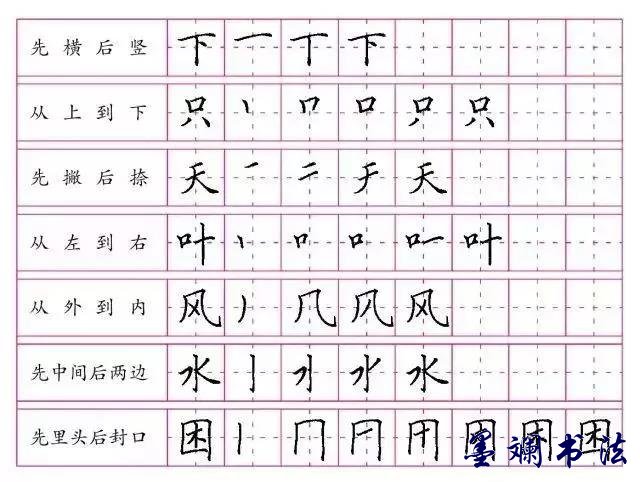 先横后竖 下 一 丅 下
从上到下 只 丨 口 口 只 只
先撇后捺 天 一 二 于 天
从左到右 叶 丨 口 口 叶
从外到内 风 丿 几 风
先中间后两边 水 亅 水
先里头后封口 困 丨 冂 困
墨斓书法